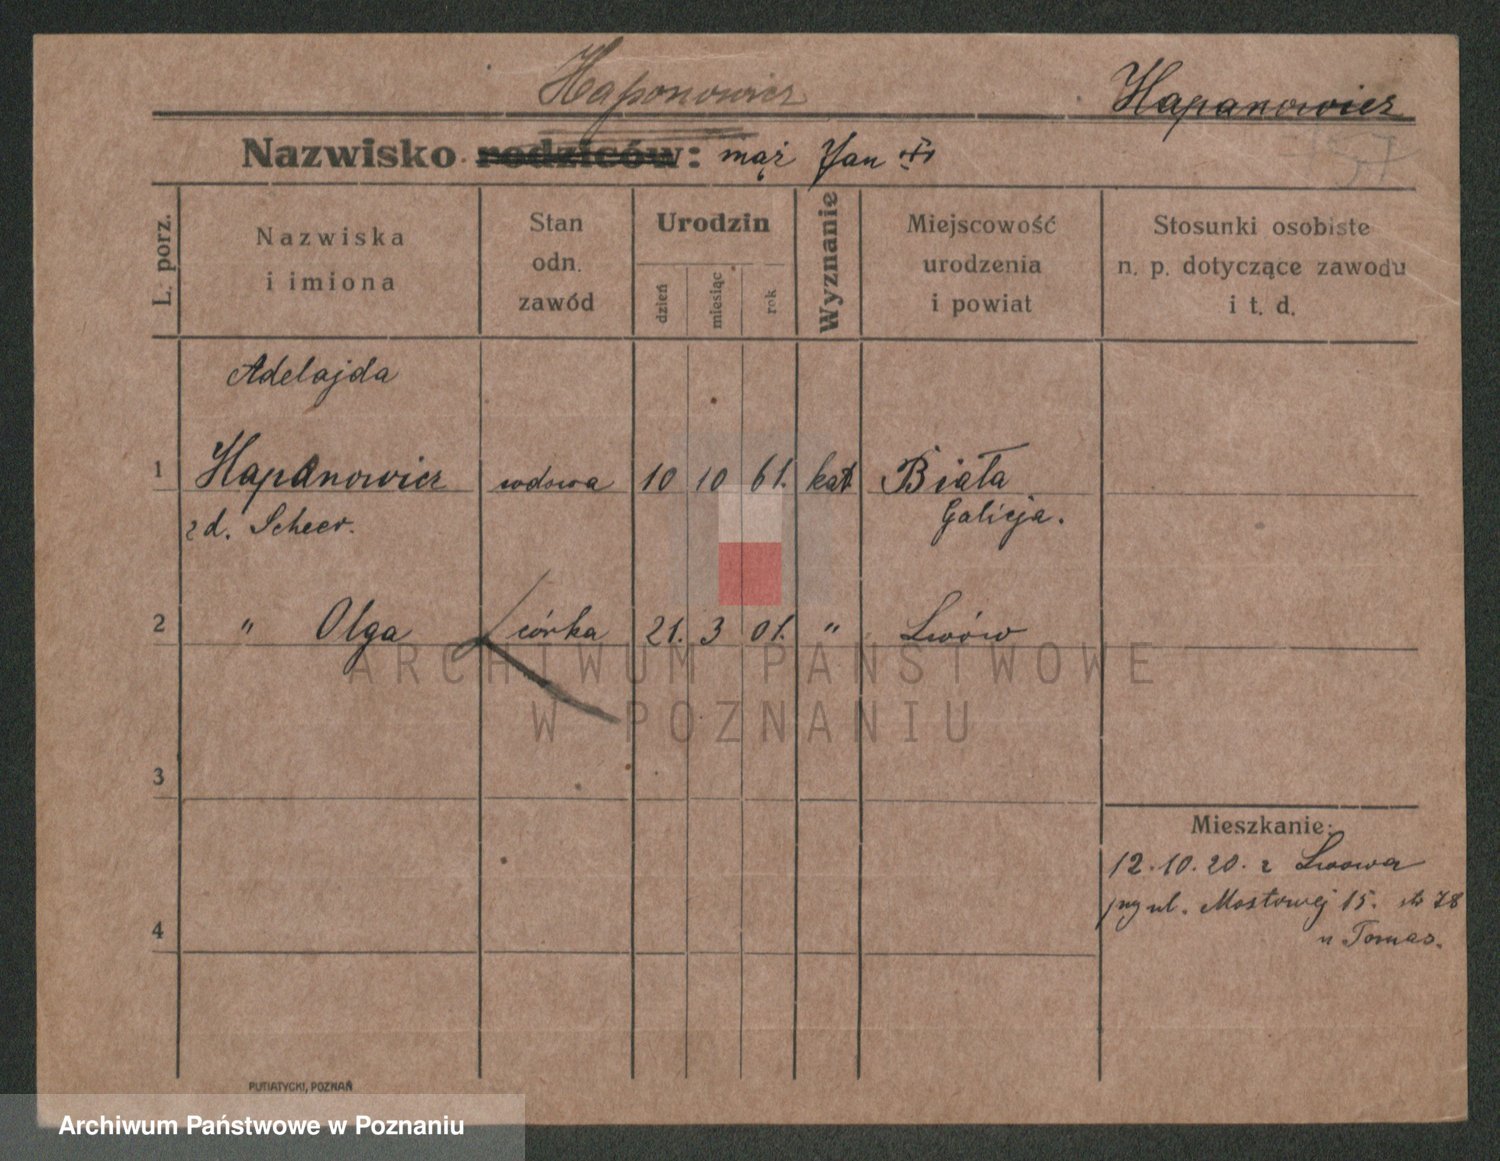 Haponowicz
Hapanowicz
Nazwisko rodziców: mąż Jan
L. porz.
Nazwiska
i imiona
Stan
odn.
zawód
Urodzin
dzień
miesiąc
rok
Wyznanie
Miejscowość
urodzenia
i powiat
Stosunki osobiste
n. p. dotyczące zawodu
i t. d.
Adelajda
1 Hapanowicz wdowa 10 10 61. kat Biała
z d. Scheer. Galicja.
2 " Olga córka 21. 3 01. " Lwów
ARCHIWUM PAŃSTWOWE
W POZNANIU
3
Mieszkanie:
12.10.20. z Lwowa
ul. Mostowej 15.
4
u Tomas.
PUTIATYCKI, POZNAŃ
Archiwum Państwowe w Poznaniu